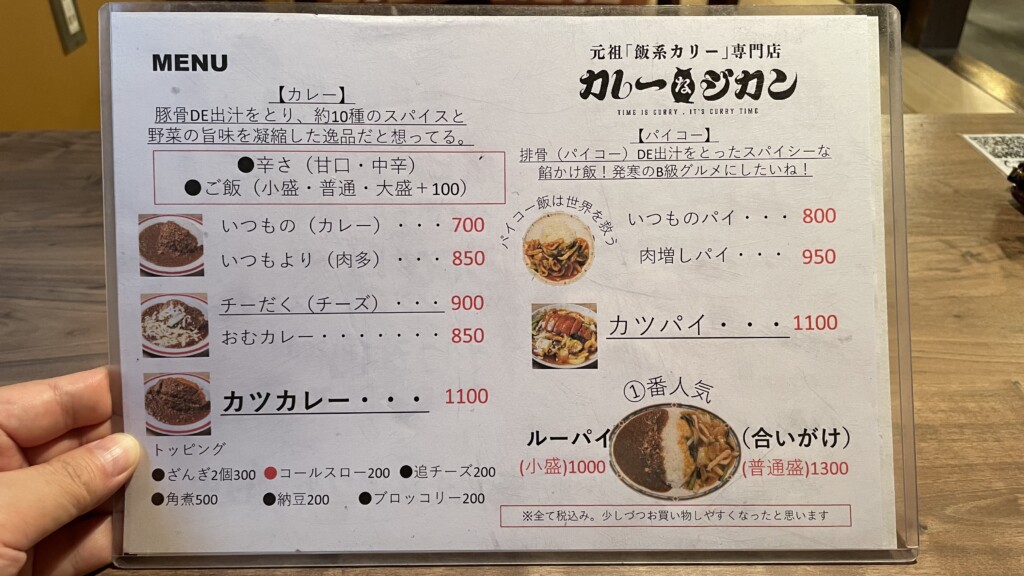 MENU
【カレー】
豚骨DE出汁をとり、約10種のスパイスと
野菜の旨味を凝縮した逸品だと想ってる。
●辛さ（甘口・中辛）
●ご飯（小盛・普通・大盛＋100）
いつもの（カレー）・・・700
いつもより（肉多）・・・850
チーだく（チーズ）・・・900
おむカレー・・・・・・・850
カツカレー・・・ 1100
トッピング
●ざんぎ2個300 ●コールスロー200 ●追チーズ200
●角煮500 ●納豆200 ●ブロッコリー200
元祖「飯系カリー」専門店
カレージカン
TIME IS CURRY , IT'S CURRY TIME
【パイコー】
排骨（パイコー）DE出汁をとったスパイシーな
餡かけ飯！発寒のB級グルメにしたいね！
パイコー飯は世界を救う
いつものパイ・・・ 800
肉増しパイ・・・ 950
カツパイ・・・1100
①番人気
ルーパイ（合いがけ）
(小盛)1000 (普通盛)1300
※全て税込み。少しづつお買い物しやすくなったと思います